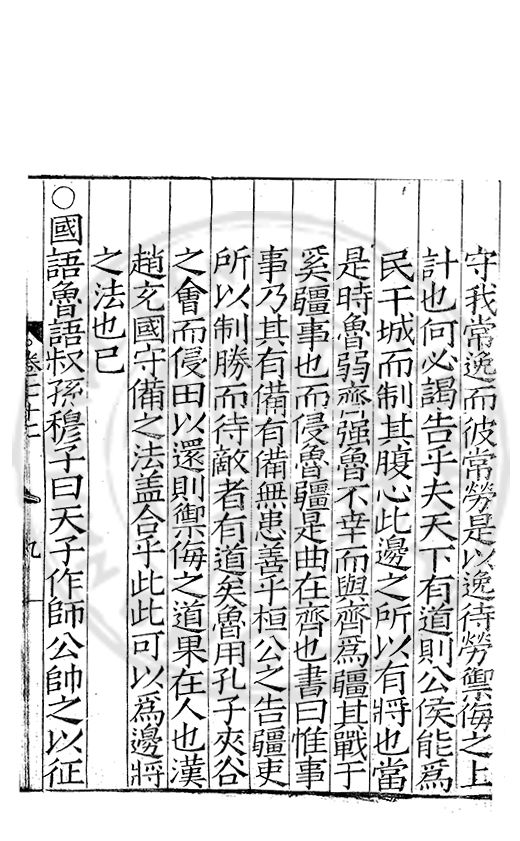 守我常逸而彼常勞是以逸待勞禦侮之上
計也何必謁告乎夫天下有道則公侯能爲
民干城而制其腹心此邊之所以有將也當
是時魯弱齊强魯不幸而與齊爲疆其戰于
奚疆事也而侵魯疆是曲在齊也書曰惟事
事乃其有備有備無患善乎桓公之告疆吏
所以制勝而待敵者有道矣魯用孔子夾谷
之會而侵田以還則禦侮之道果在人也漢
趙充國守備之法盖合乎此此可以爲邊將
之法也已
○國語魯語叔孫穆子曰天子作師公帥之以征
卷二十二
九